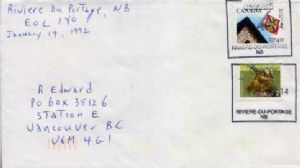 Riviere Du Portage, NB
E0C 1Y0
January 14, 1992
CANADA
40
RIVIERE-DU-PORTAGE
NB
14
RIVIERE-DU-PORTAGE
NB
R Edward
PO Box 35126
Station E
Vancouver BC
V6M 4G1